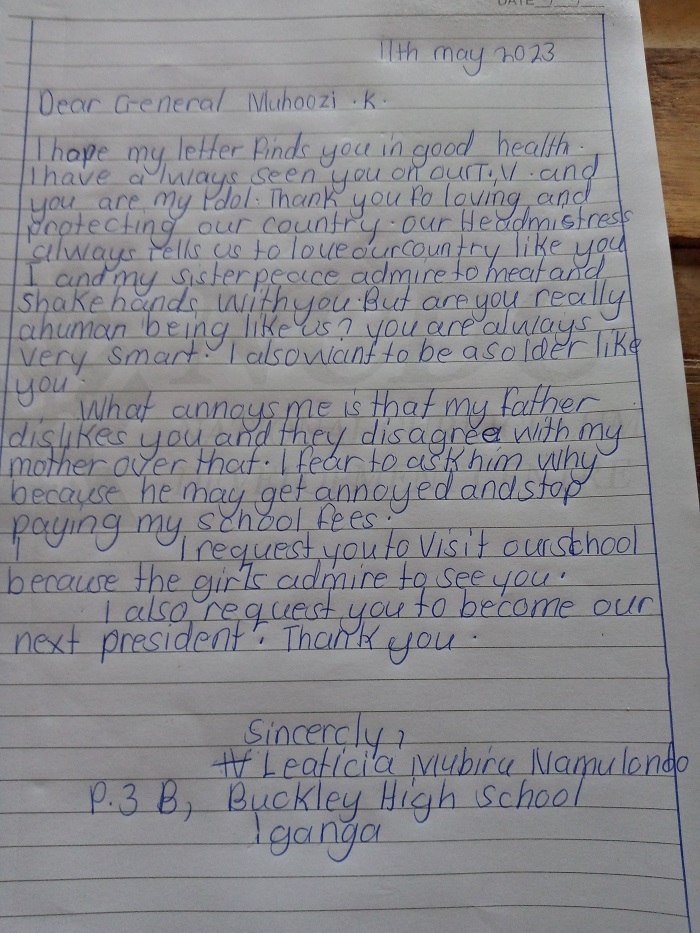 DATE
11th may 2023
Dear General Muhoozi .K.
I hope my letter finds you in good health.
I have always seen you on our T.V. and
you are my Idol. Thank you fo loving and
protecting our country. our Headmistress
always tells us to love our country like you
I and my sister peace admire to meat and
shake hands with you. But are you really
a human being like us? you are always
very smart. I also want to be a solder like
you.
What annoys me is that my father
dislikes you and they disagree with my
mother over that. I fear to ask him why
because he may get annoyed and stop
paying my school fees.
I request you to visit our school
because the girls admire to see you.
I also request you to become our
next president. Thank you.
Sincerely,
Leaticia Mubiru Namulondo
P.3 B, Buckley High School
Iganga